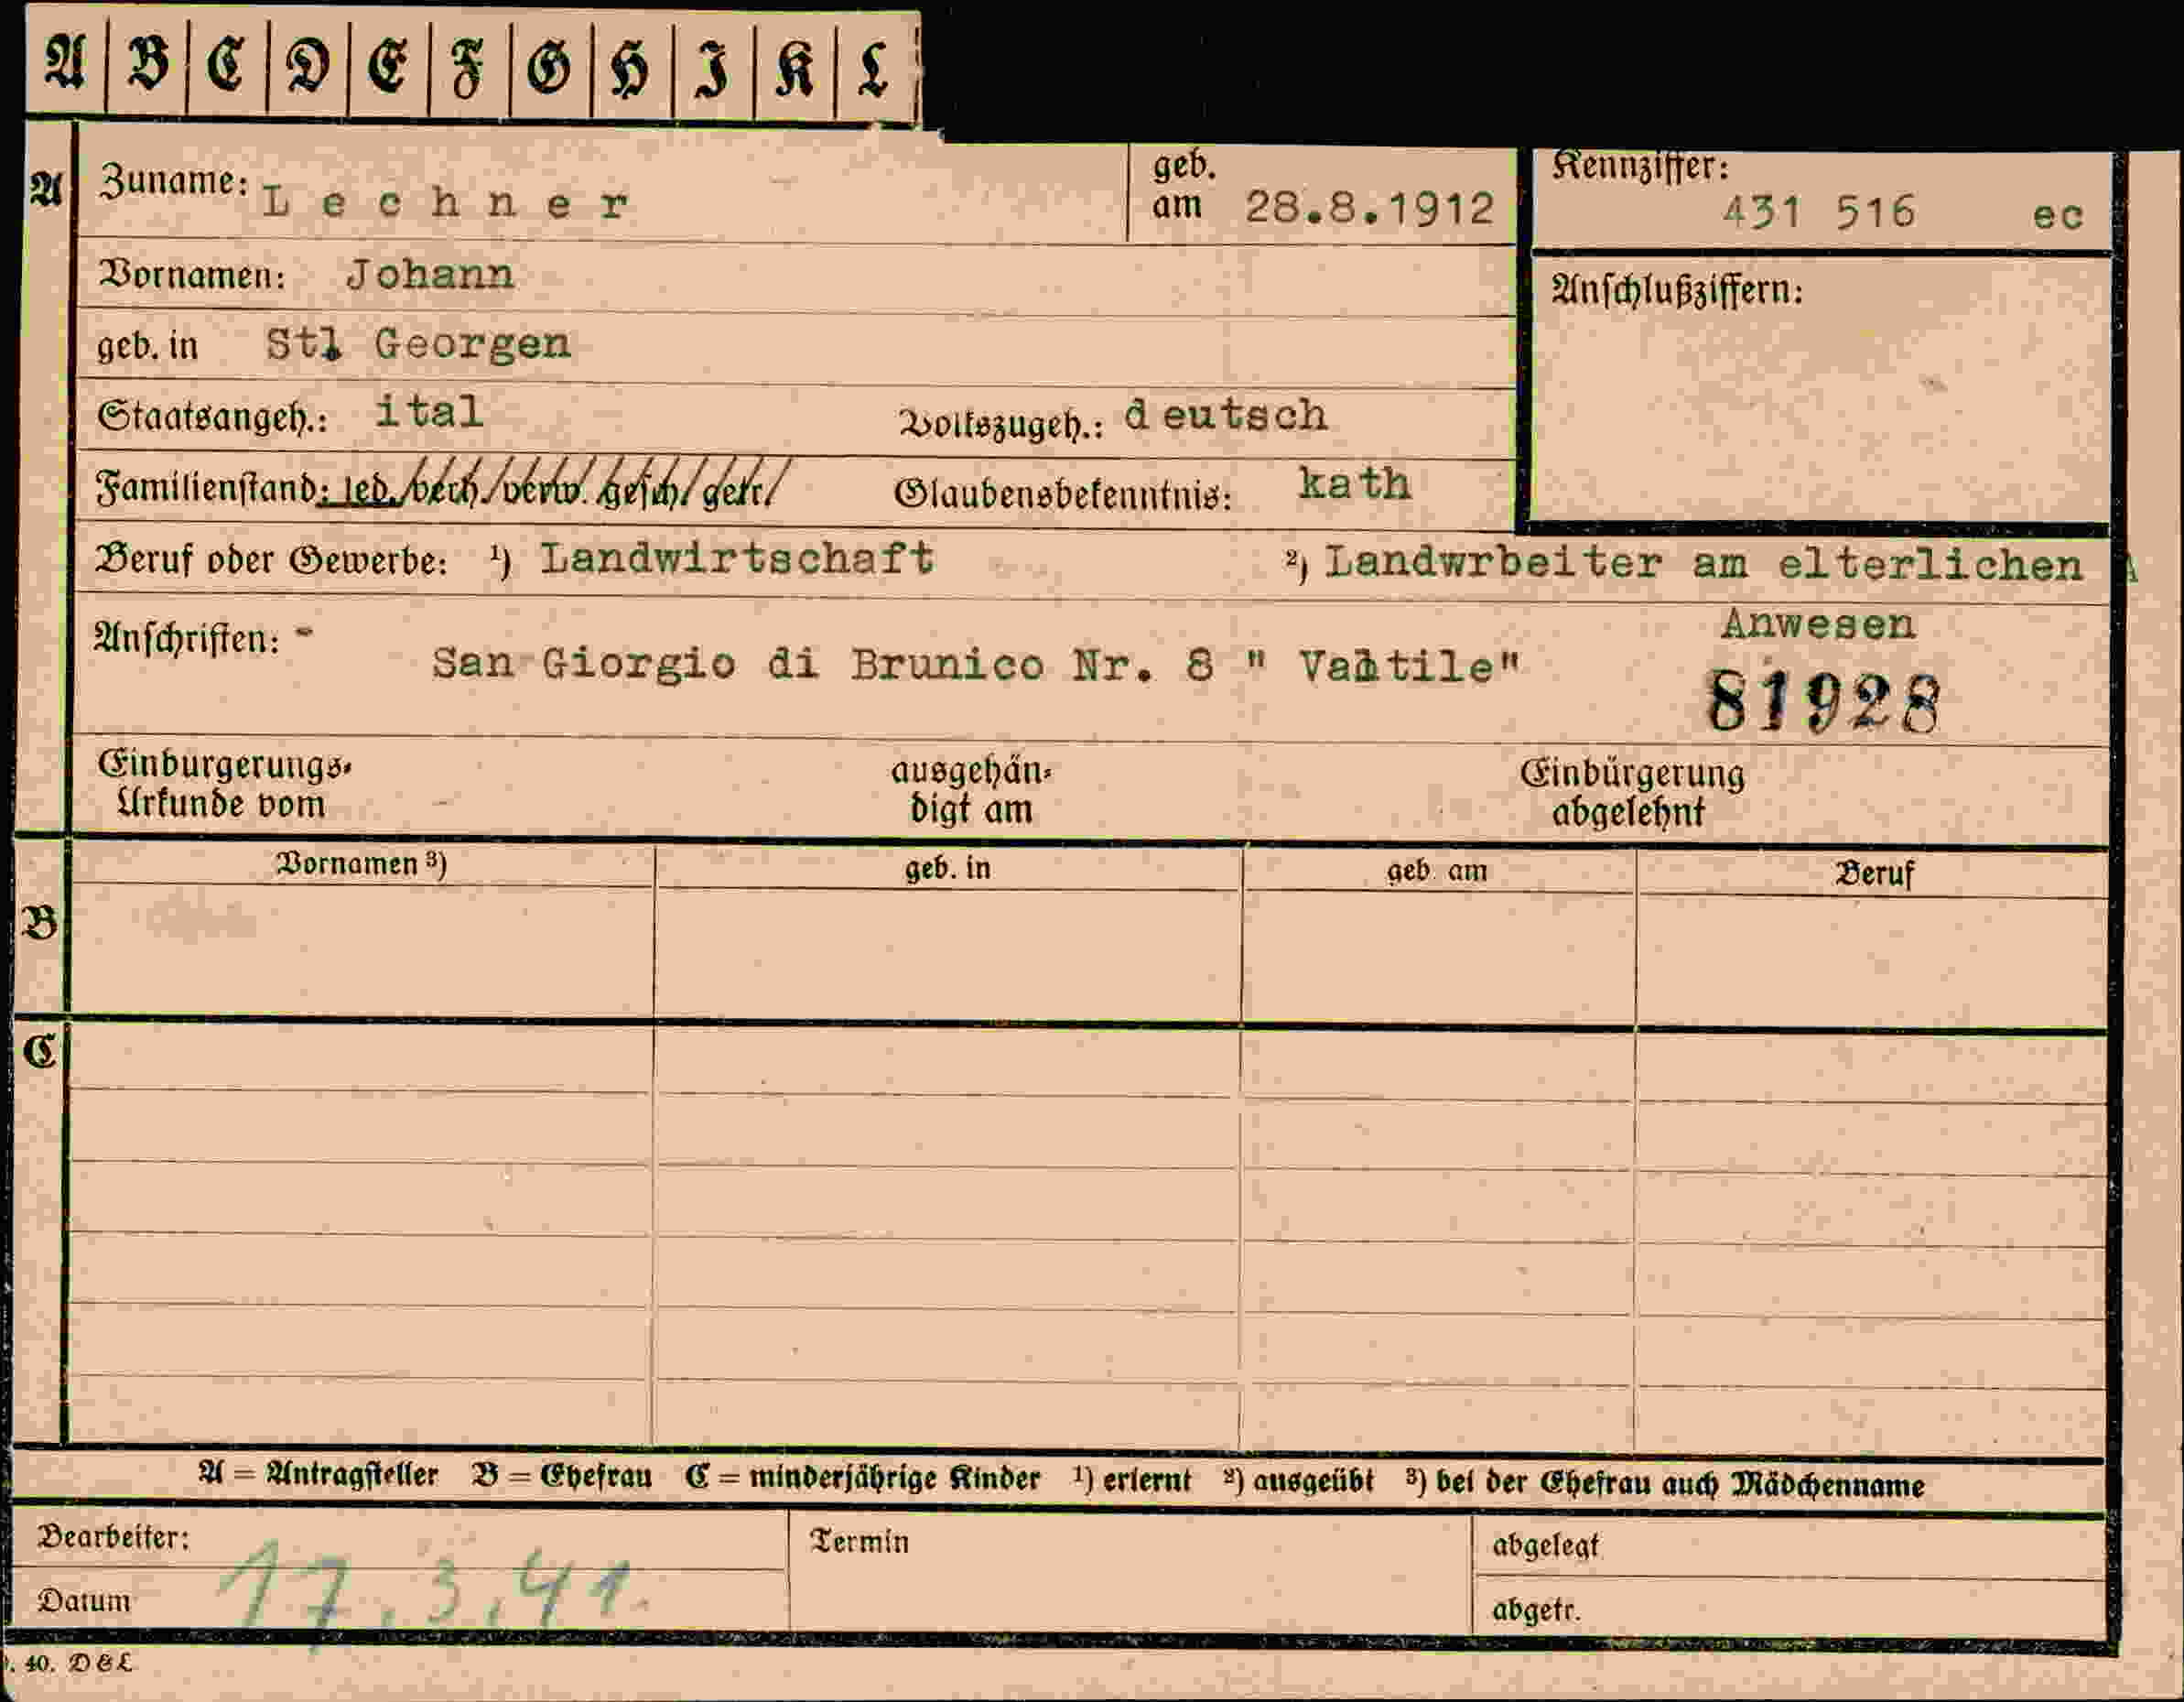 A B C D E F G H I K L
A Zuname: Lechner geb. am 28.8.1912 Kennziffer: 431 516 ec
Vornamen: Johann Anschlußziffern:
geb. in Stl Georgen
Staatsangeh.: ital Volkszugeh.: deutsch
Familienstand: led./verh./verw./gesch./getr./ Glaubensbekenntnis: kath
Beruf oder Gewerbe: ¹) Landwirtschaft ²) Landwrbeiter am elterlichen A
Anwesen
Anschriften: - San Giorgio di Brunico Nr. 8 "
81928
Einbürgerungs-
Urkunde vom
ausgehän-
digt am
Einbürgerung
abgelehnt
B Vornamen ³) geb. in geb. am Beruf
C
A = Antragsteller B = Ehefrau C = minderjährige Kinder ¹) erlernt ²) ausgeübt ³) bei der Ehefrau auch Mädchenname
Bearbeiter: Termin abgelegt
Datum 17.3.41. abgetr.
40. D&L